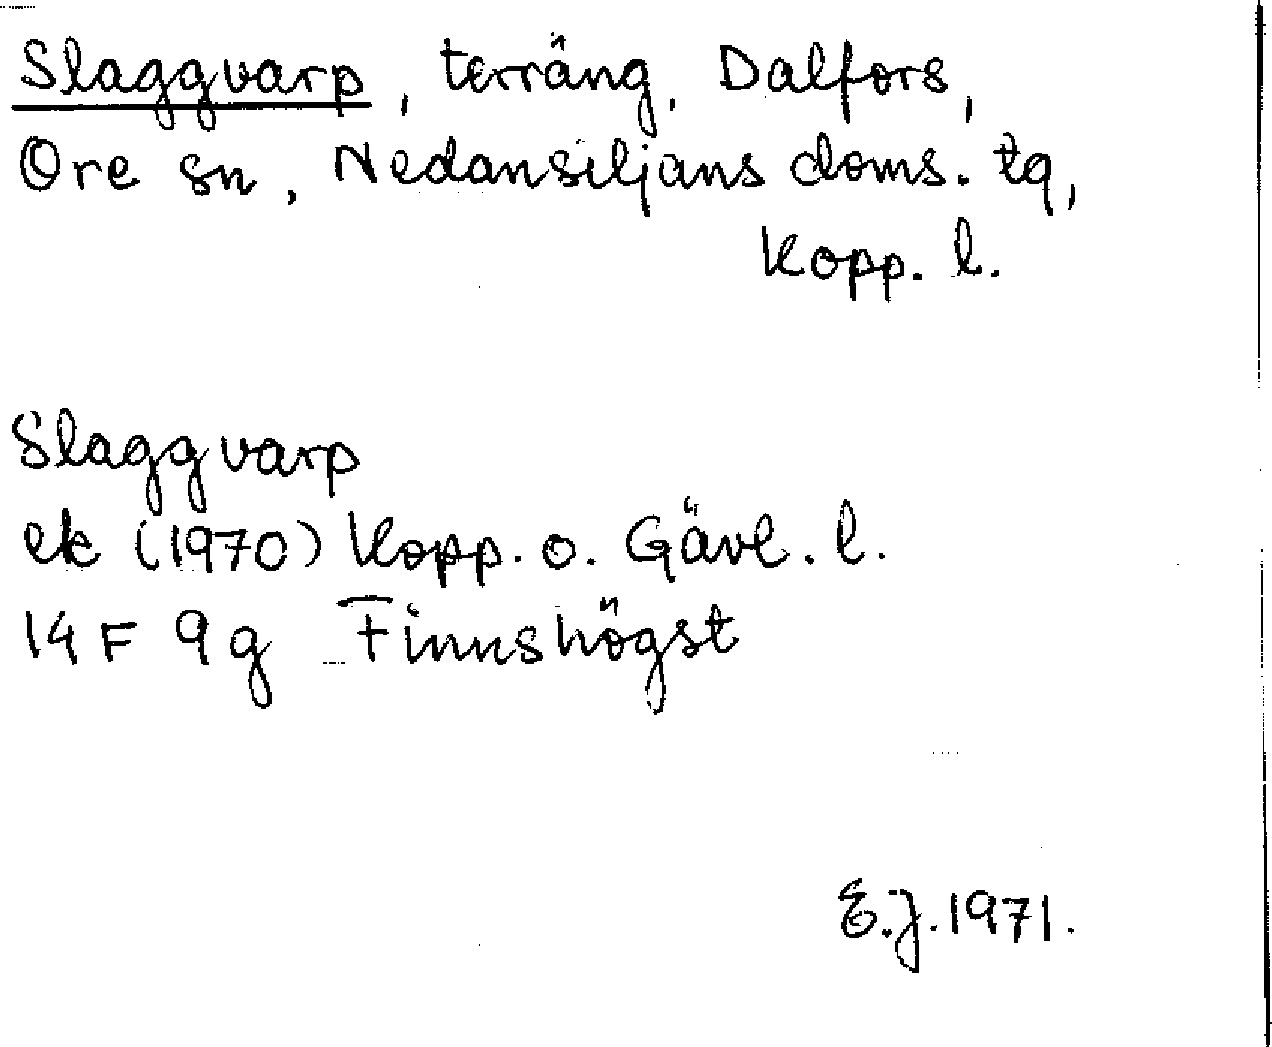 Slaggvarp, terräng, Dalfors,
Ore sn, Nedansiljans doms. tg,
Kopp. l.
Slaggvarp
ek (1970) Kopp. o. Gävl. l.
14 F 9 g Finnshögst
E.J. 1971.